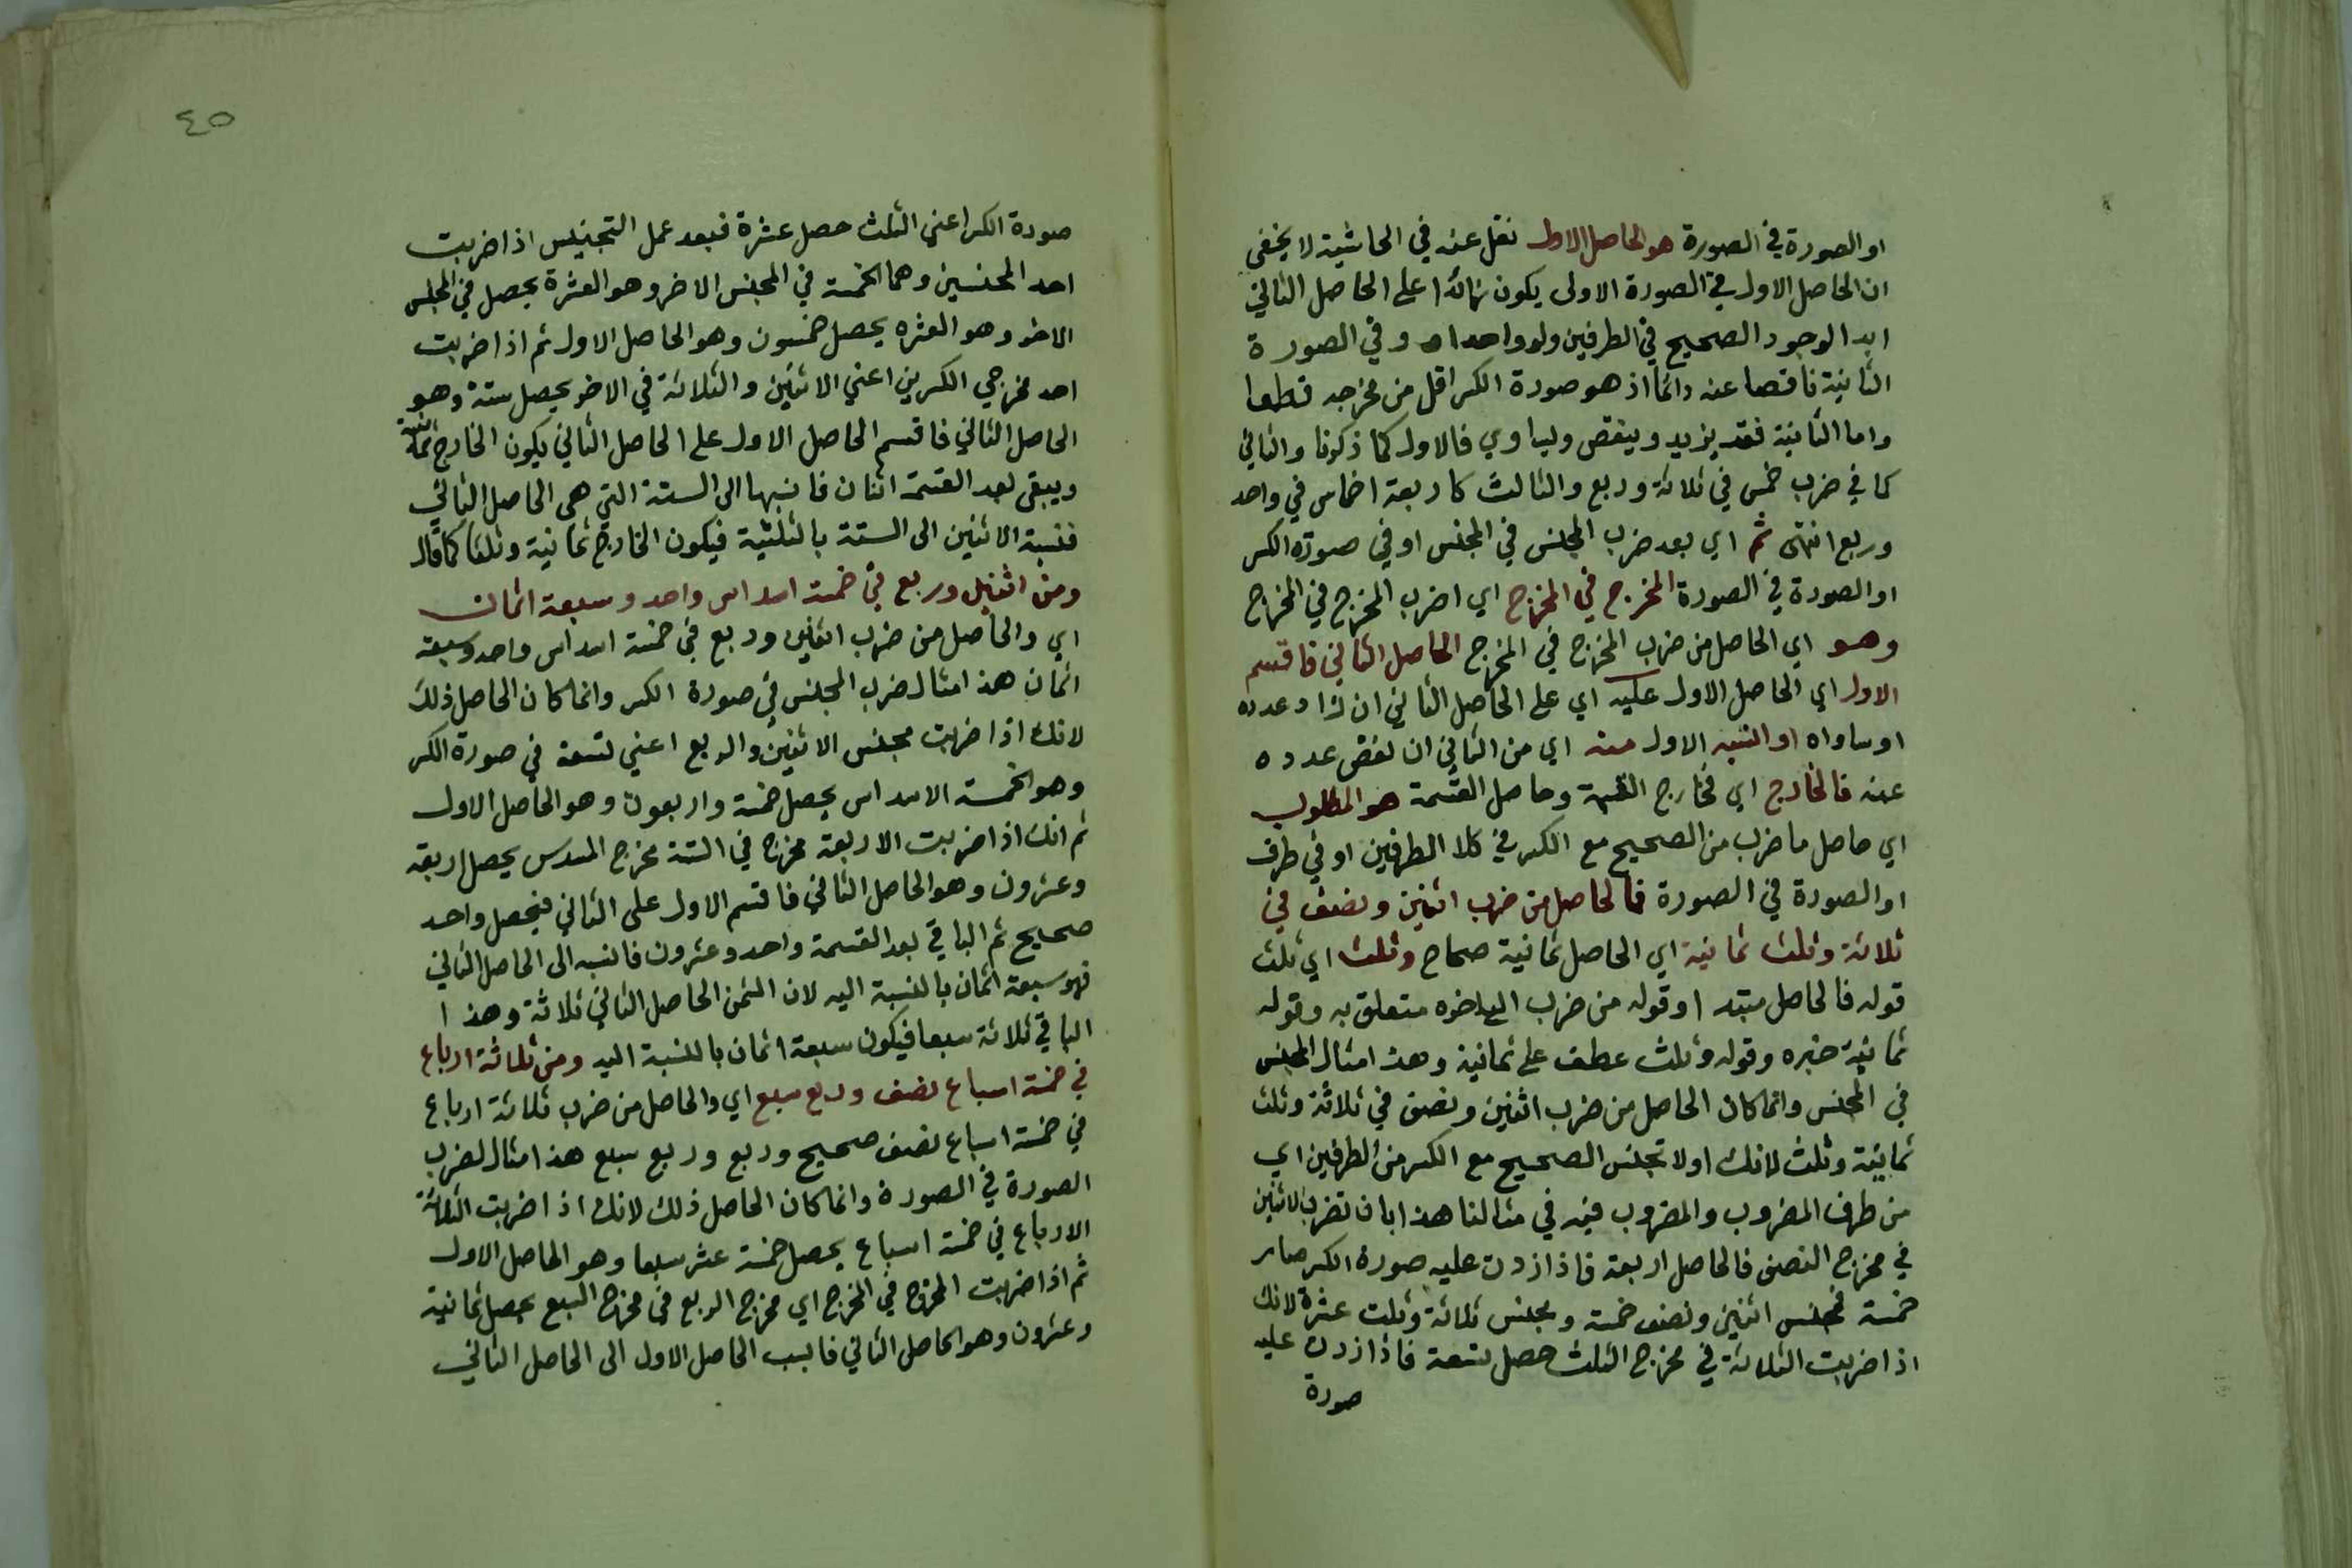 او الصورة في الصورة هو الحاصل الاول نقل عنه في الحاشية لا يخفى
ان الحاصل الاول في الصورة الاولى يكون زائدا على الحاصل الثاني
ابدا لوجود الصحيح في الطرفين ولو واحدا وفي الصورة
الثانية ناقصا عنه دائما اذ هو صورة الكسر اقل من مخرجه قطعا
واما الثانية فقد يزيد وينقص ويساوي فالاول كما ذكرنا والثاني
كما في ضرب خمس في ثلاثة وربع والثالث كاربعة اخماس في واحد
وربع انتهى ثم اي بعد ضرب المجنس في المجنس او في صورة الكسر
او الصورة في الصورة المخرج في المخرج اي اضرب المخرج في المخرج
وهو اي الحاصل من ضرب المخرج في المخرج الحاصل الثاني فاقسم
الاول اي الحاصل الاول عليه اي على الحاصل الثاني ان زاد عدده
او ساواه او انسبه الاول منه اي من الثاني ان نقص عدده
عنه فالخارج اي فخارج القسمة وحاصل القسمة هو المطلوب
اي حاصل ما ضرب من الصحيح مع الكسر في كلا الطرفين او في طرف
او الصورة في الصورة فالحاصل من ضرب اثنين ونصف في
ثلاثة وثلث ثمانية اي الحاصل ثمانية صحاح وثلث اي ثلث
قوله فالحاصل مبتدا وقوله من ضرب الى اخره متعلق به وقوله
ثمانية خبره وقوله وثلث عطف على ثمانية وهذا مثال المجنس
في المجنس وانما كان الحاصل من ضرب اثنين ونصف في ثلاثة وثلث
ثمانية وثلث لانك اولا تجنس الصحيح مع الكسر من الطرفين اي
من طرف المضروب والمضروب فيه في مثالنا هذا بان تضرب الاثنين
في مخرج النصف فالحاصل اربعة فاذا زدت عليه صورة الكسر صار
خمسة فمجنس اثنين ونصف خمسة ومجنس ثلاثة وثلث عشرة لانك
اذا ضربت الثلاثة في مخرج الثلث حصل تسعة فاذا زدت عليه
صورة
٤٥
صورة الكسر اعني الثلث حصل عشرة فبعد عمل التجنيس اذا ضربت
احد المجنسين وهما الخمسة في المجنس الاخر وهو العشرة يحصل في المجلس
الاخر وهو العشره يحصل خمسون وهو الحاصل الاول ثم اذا ضربت
احد مخرجي الكسرين اعني الاثنين والثلاثة في الاخر يحصل ستة وهو
الحاصل الثاني فاقسم الحاصل الاول على الحاصل الثاني يكون الخارج ثمانية
ويبقى بعد القسمة اثنان فانسبها الى الستة التي هي الحاصل الثاني
فنسبة الاثنين الى الستة بالثلثية فيكون الخارج ثمانية وثلثا كما قال
ومن اثنين وربع في خمسة اسداس واحد وسبعة اثمان
اي والحاصل من ضرب اثنين وربع في خمسة اسداس واحد وسبعة
اثمان هذا مثال ضرب المجنس في صورة الكسر وانما كان الحاصل ذلك
لانك اذا ضربت مجنس الاثنين والربع اعني تسعة في صورة الكسر
وهو الخمسة الاسداس يحصل خمسة واربعون وهو الحاصل الاول
ثم انك اذا ضربت الاربعة مخرج في الستة مخرج المسدس يحصل اربعة
وعشرون وهو الحاصل الثاني فاقسم الاول على الثاني فيحصل واحد
صحيح ثم الباقي بعد القسمة واحد وعشرون فانسبه الى الحاصل الثاني
فهو سبعة اثمان بالنسبة اليه لان الثمن الحاصل الثاني ثلاثة وهذا
الباقي ثلاثة سبعا فيكون سبعة اثمان بالنسبة اليه ومن ثلاثة ارباع
في خمسة اسباع نصف وربع سبع اي والحاصل من ضرب ثلاثة ارباع
في خمسة اسباع نصف صحيح وربع وربع سبع هذا مثال لضرب
الصورة في الصورة وانما كان الحاصل ذلك لانك اذا ضربت الثلاثة
الارباع في خمسة اسباع يحصل خمسة عشر سبعا وهو الحاصل الاول
ثم اذا ضربت المخرج في المخرج اي مخرج الربع في مخرج السبع يحصل ثمانية
وعشرون وهو الحاصل الثاني فانسب الحاصل الاول الى الحاصل الثاني